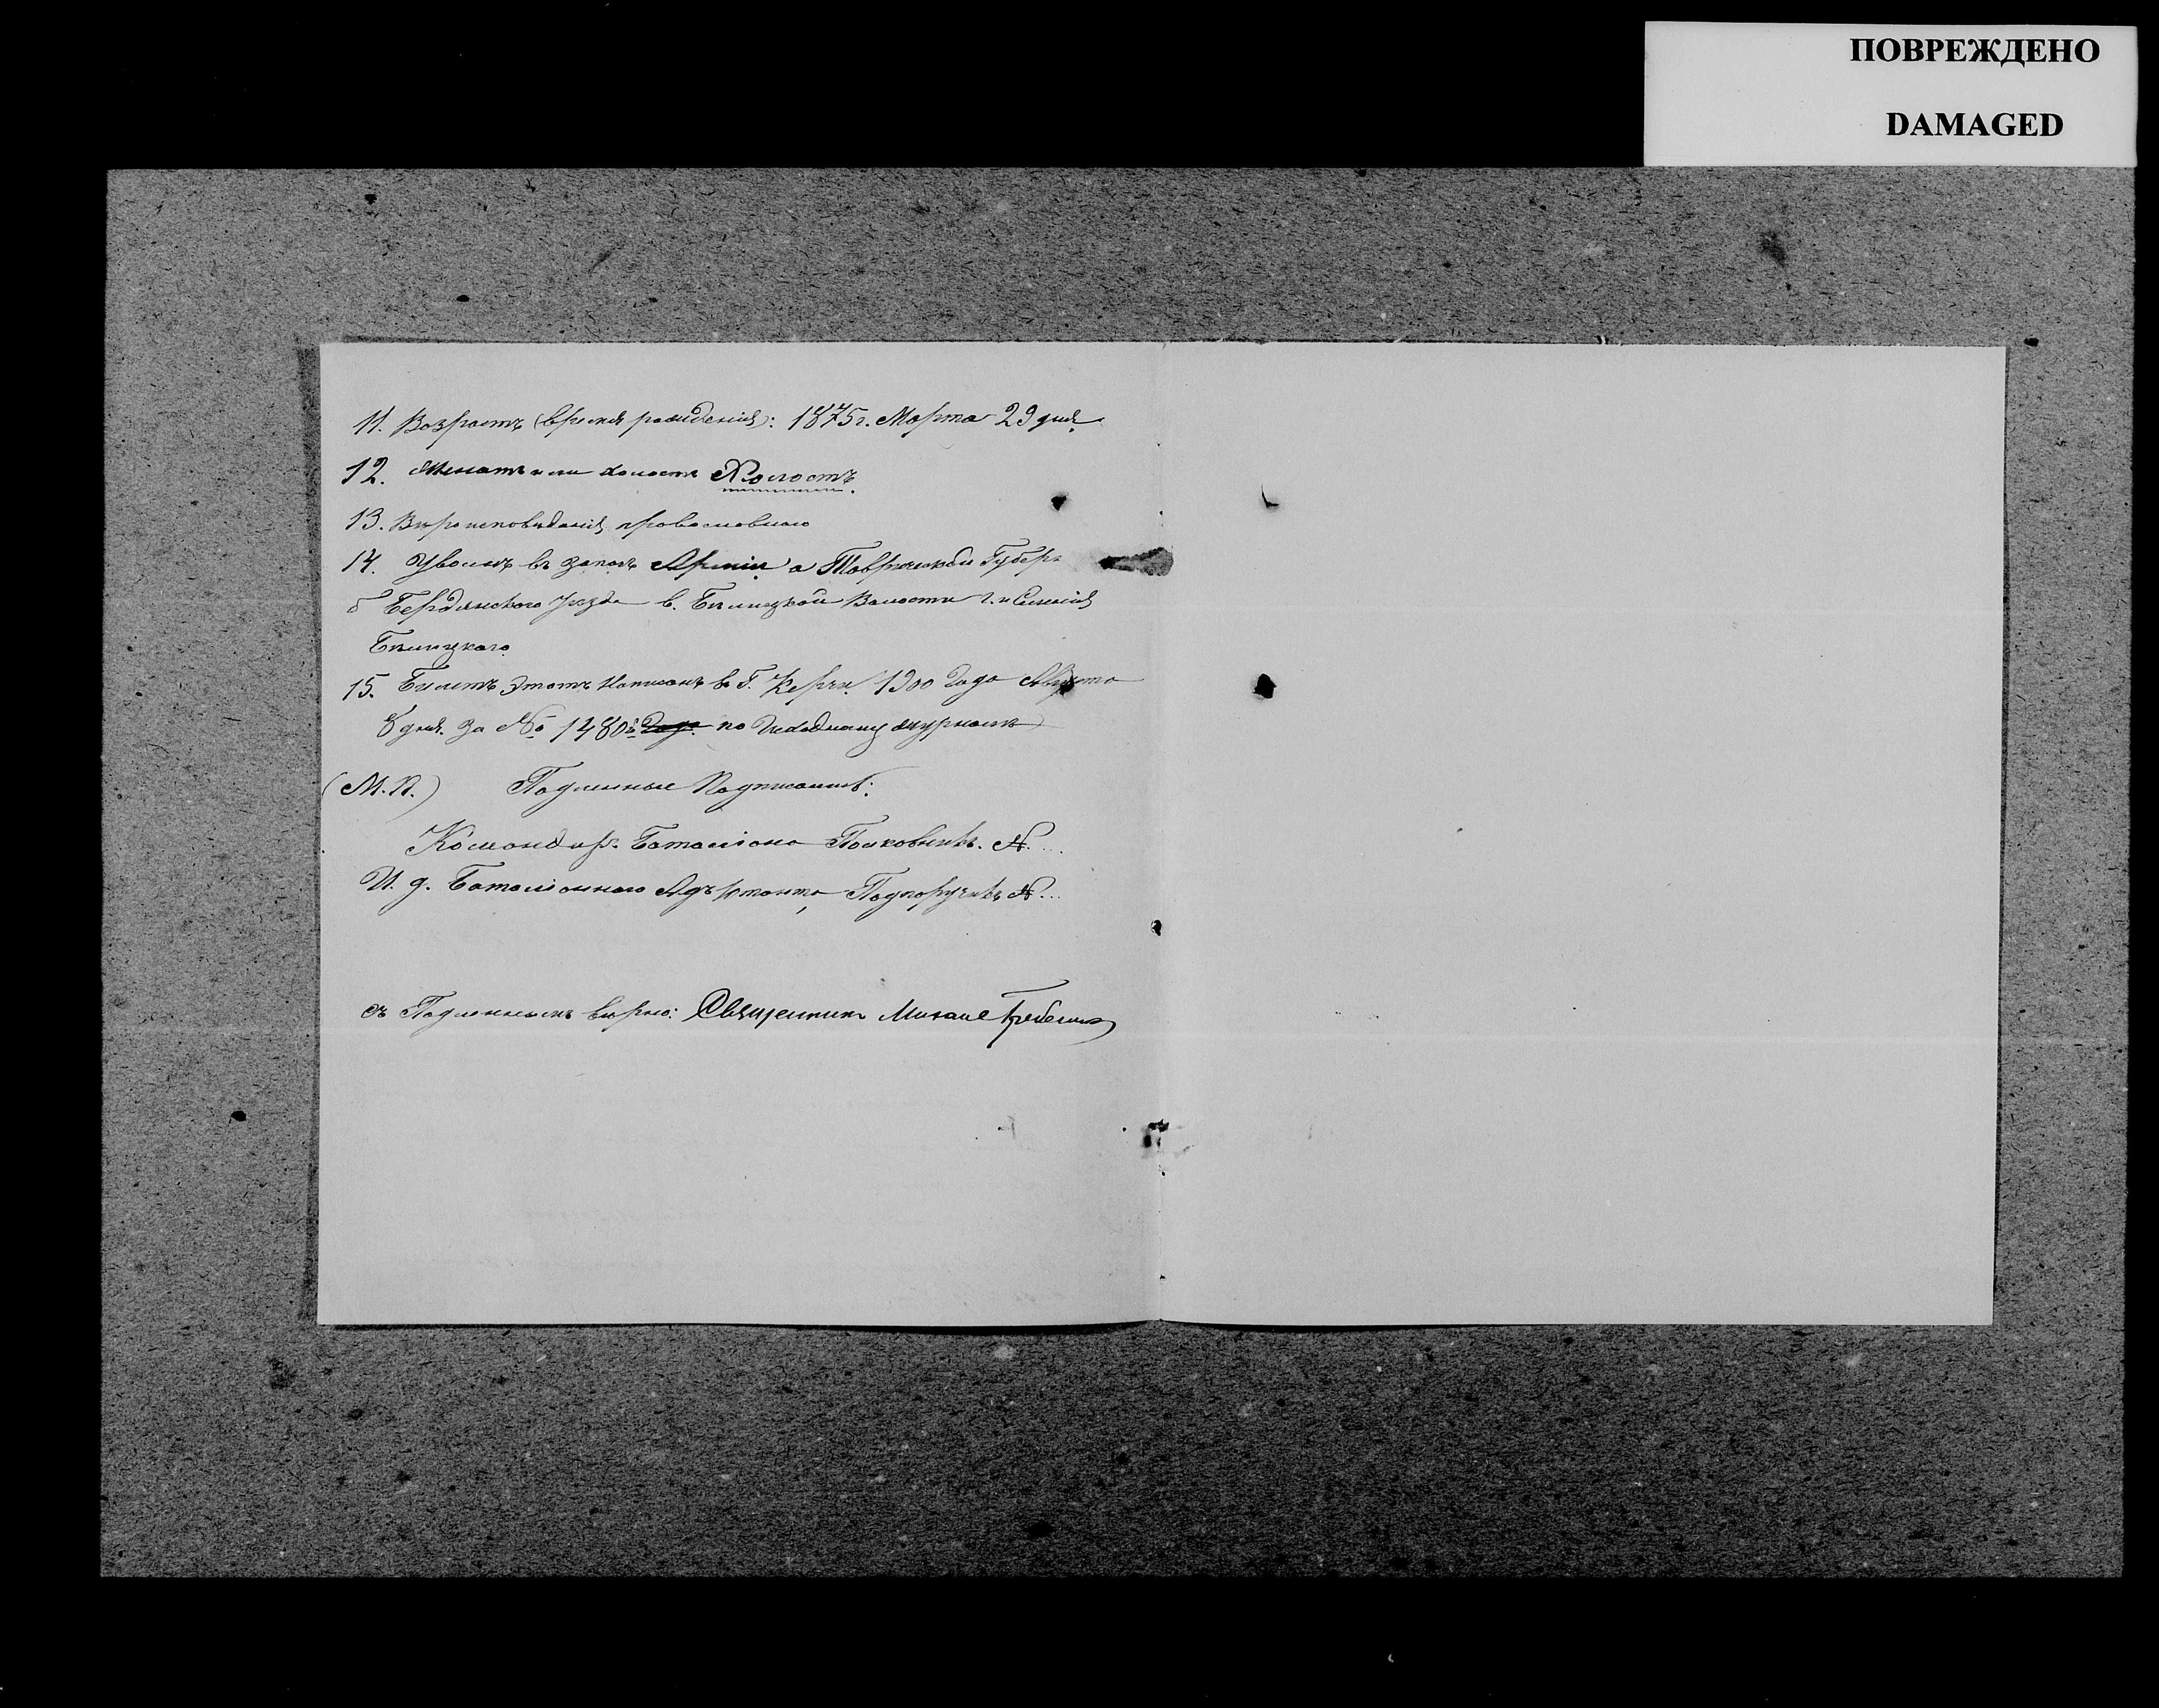 ПОВРЕЖДЕНО
DAMAGED
11. Возрастъ (время рожденія): 1875 г. Марта 29 дня.
12. Женатъ или холостъ Холостъ.
13. Вѣроисповѣданія православнаго
14. Уволенъ въ запасъ Арміи а Таврической Губер.
б Бердянскаго уѣзда в. Бѣлицкой Волости г. и Селенія
Бѣлицкаго.
15. Билетъ этотъ написанъ въ г. Керчи 1900 года Августа
8 дня за № 1480 по Исходящему журналу
(М.П.) Подлинные Подписали:
Командиръ Баталіона Полковникъ N...
И. д. Баталіоннаго Адъютанта Подпоручикъ N...
съ Подлиннымъ вѣрно: Священникъ Михаилъ